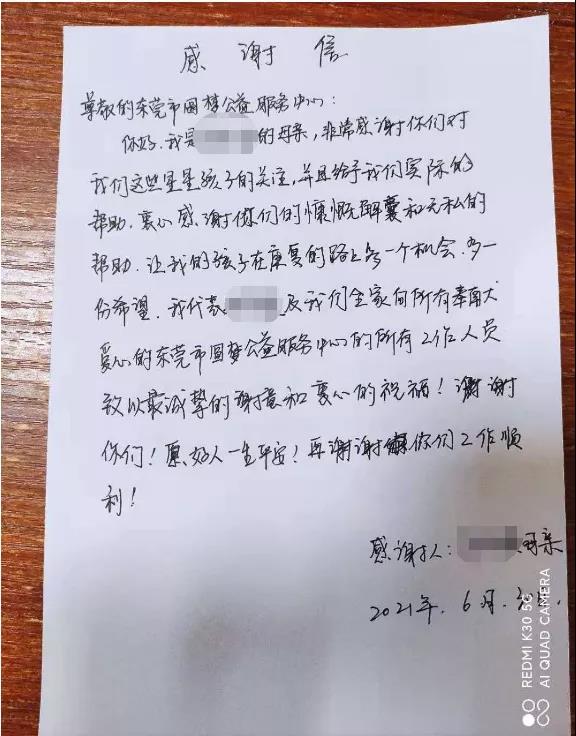 感谢信
尊敬的东莞市圆梦公益服务中心:
你好.我是的母亲,非常感谢你们对
我们这些星星孩子的关注,并且给予我们实际的
帮助.衷心感谢你们的慷慨解囊和无私的
帮助.让我的孩子在康复的路上多一个机会.多一
份希望.我代表及我们全家向所有奉献
爱心的东莞市圆梦公益服务中心的所有工作人员
致以最诚挚的谢意和衷心的祝福!谢谢
你们!愿好人一生平安!再谢谢你们工作顺
利!
感谢人:母亲
2021年.6月.
REDMI K30 5G
AI QUAD CAMERA